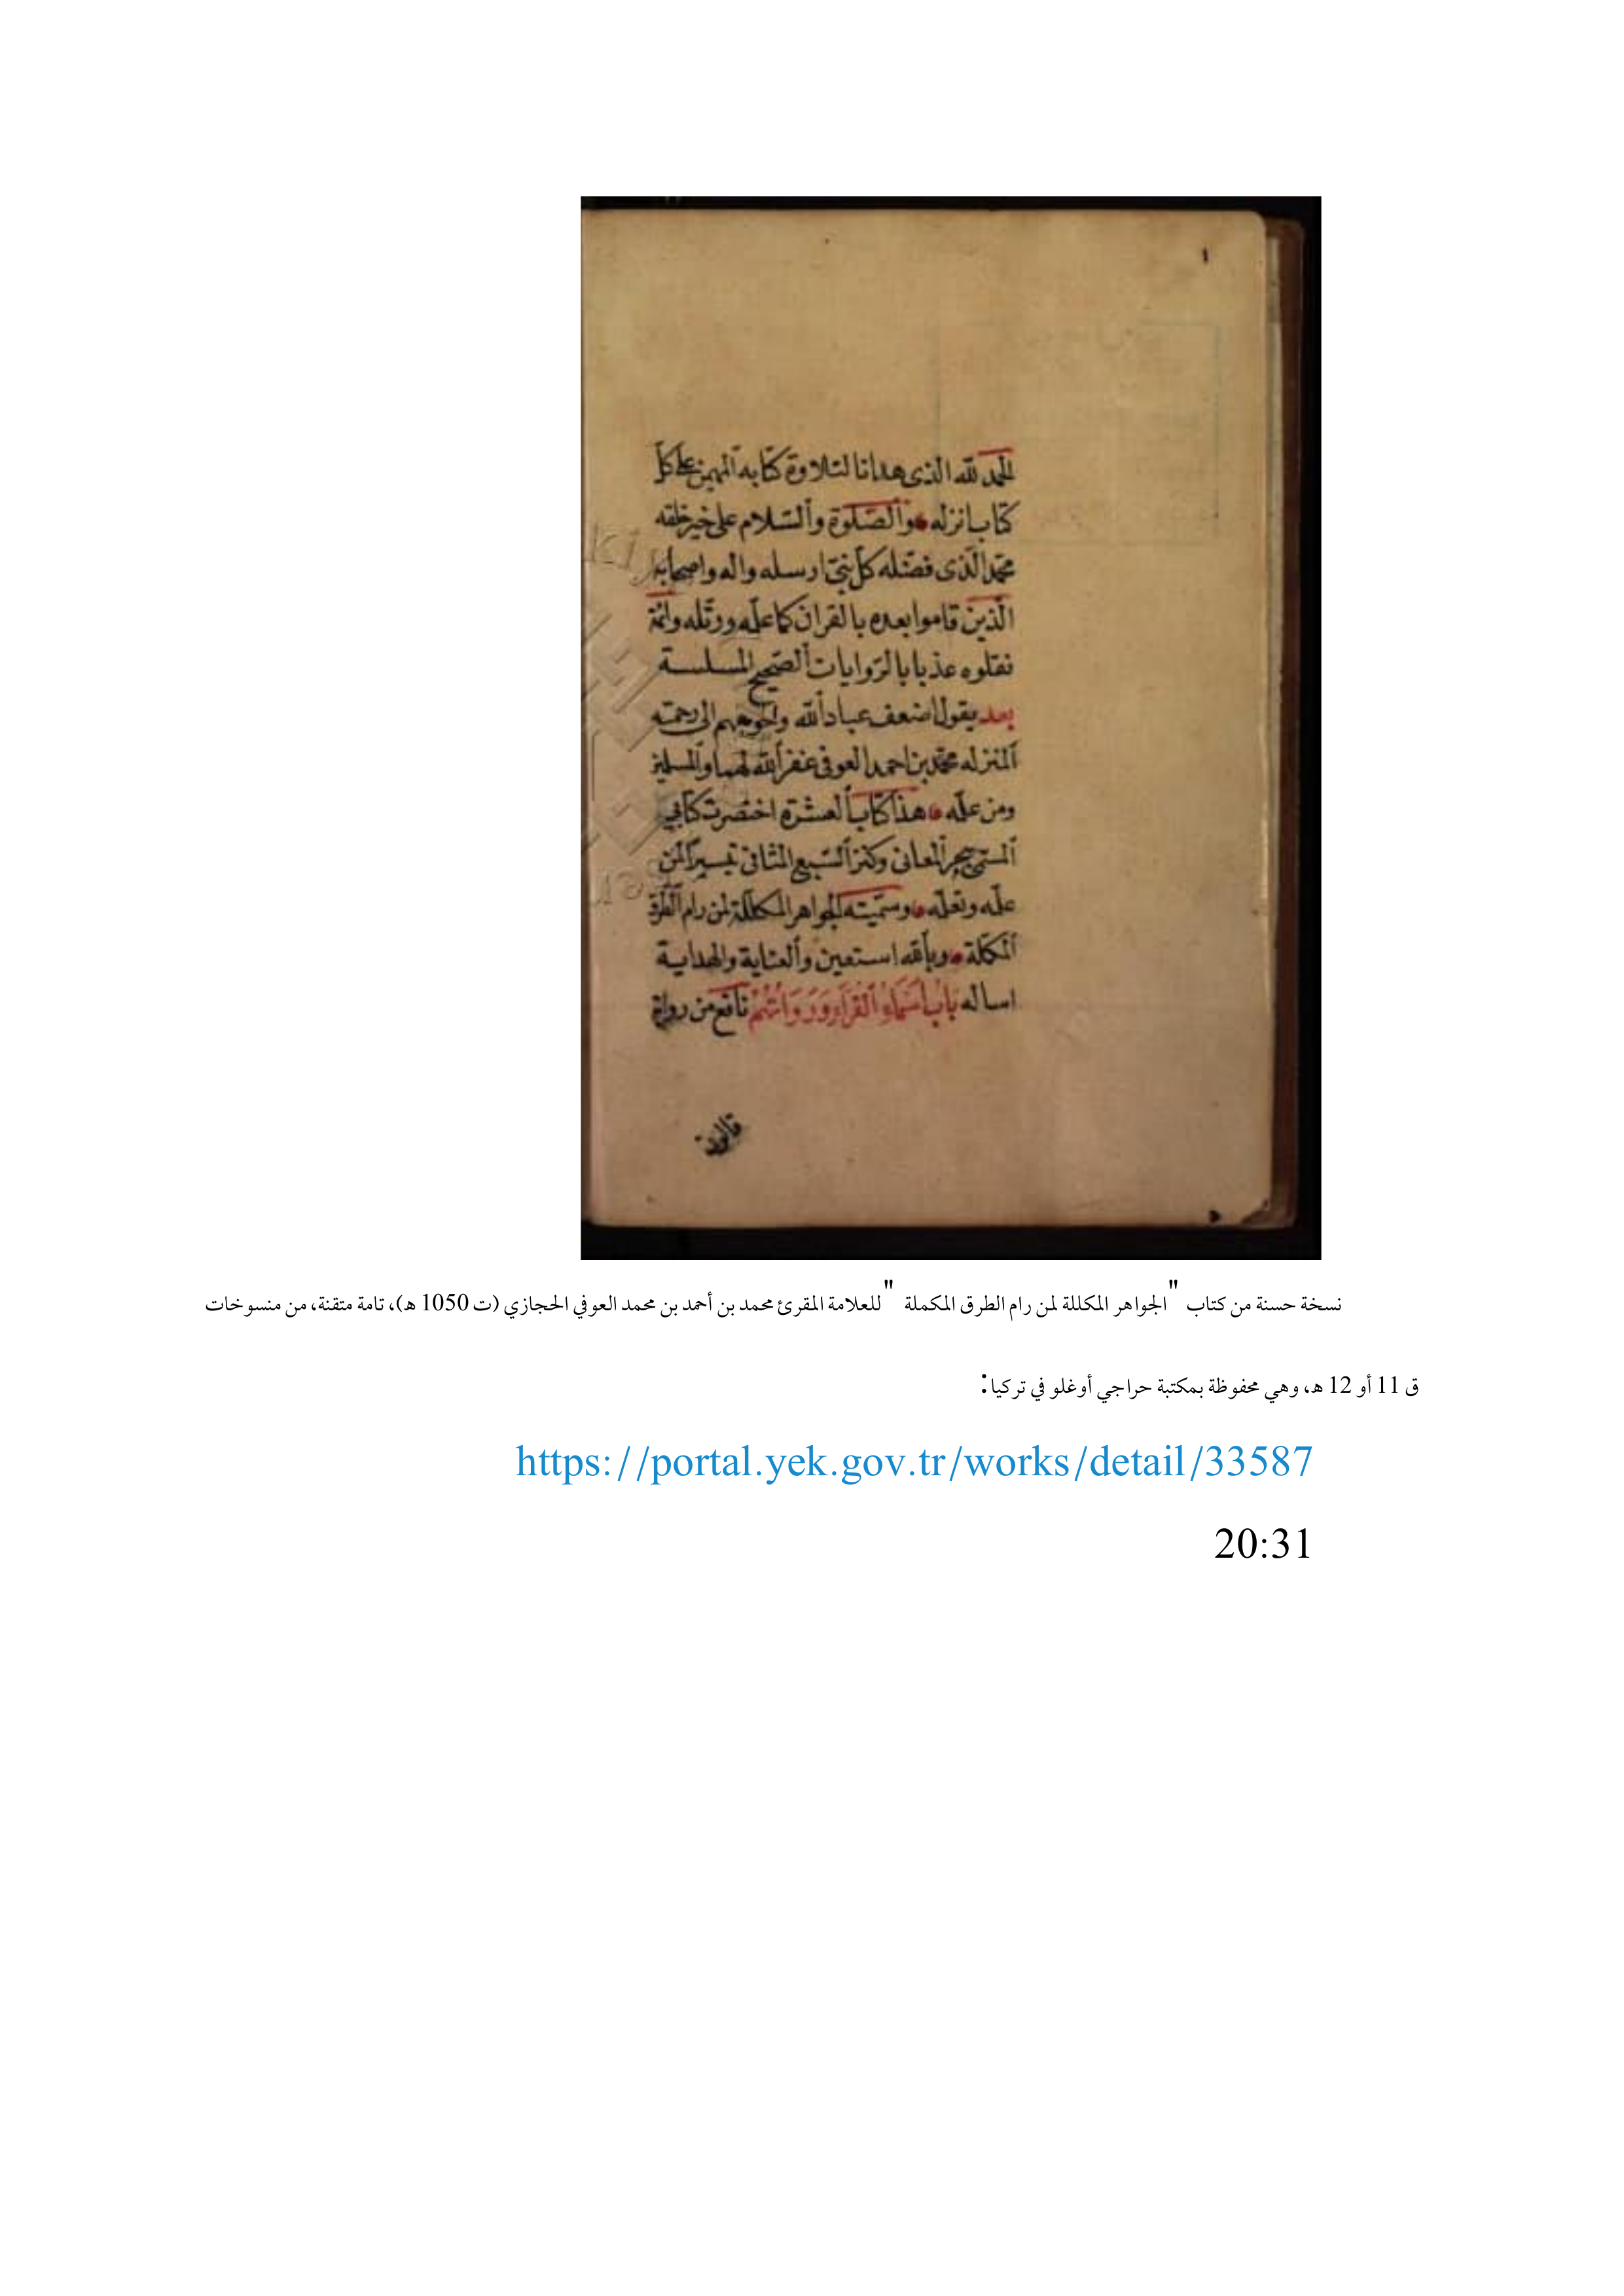 ١
الحمد لله الذى هدانا لتلاوة كتابه المهيمن على كل
كتاب انزله والصلوة والسلام على خير خلقه
محمد الذى فضله كل نبى ارسله واله واصحابه
الذين قاموا بعده بالقران كما علمه ورتله وائمة
نقلوه عذبا بالروايات الصحيح المسلسة
بعد يقول اضعف عباد الله واحوجهم الى رحمته
المنزله محمد بن احمد العوفى غفر الله لهما وللمسلمين
ومن علمه هذا كتاب العشرة اختصرت كتابى
المسمى بحر المعانى وكنز السبع المثانى تيسيرا لمن
علمه وتعلمه وسميته الجواهر المكللة لمن رام الطرق
المكملة وبالله استعين والعناية والهداية
اساله باب اسماء القراء ورواتهم نافع من رواية
قالون
نسخة حسنة من كتاب "الجواهر المكللة لمن رام الطرق المكملة" للعلامة المقرئ محمد بن أحمد بن محمد العوفي الحجازي (ت 1050 هـ)، تامة متقنة، من منسوخات
ق 11 أو 12 هـ، وهي محفوظة بمكتبة حراجي أوغلو في تركيا:
https://portal.yek.gov.tr/works/detail/33587
20:31